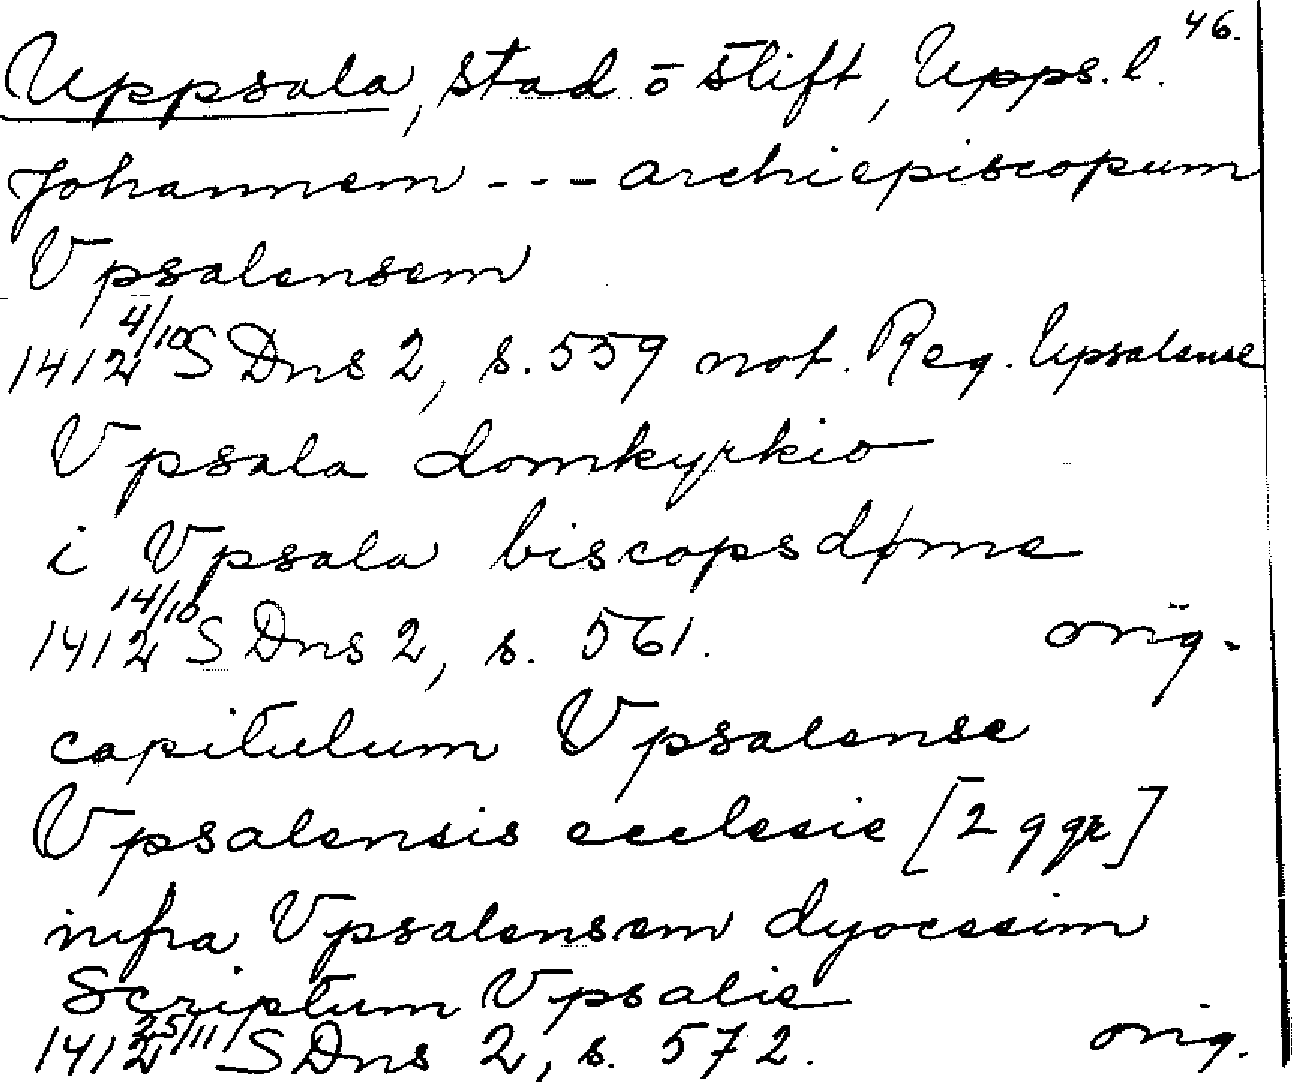 46.
Uppsala, stad o stift, Upps. l.
Johannem - - - archiepiscopum
Vpsalensem
1412 4/10 SDns 2, s. 559 not. Reg. Upsalense
Vpsala domkyrkio
i Vpsala biscopsdøme
1412 14/10 SDns 2, s. 561. orig.
capitulum Vpsalense
Vpsalensis ecclesie [2 ggr]
infra Vpsalensem dyocesim
Scriptum Vpsalie
1412 25/11 SDns 2, s. 572. orig.